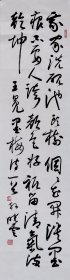 我家洗硯池頭樹個個花開淡墨
痕不要人誇顏色好祇留清氣滿
乾坤 王冕墨梅詩一首